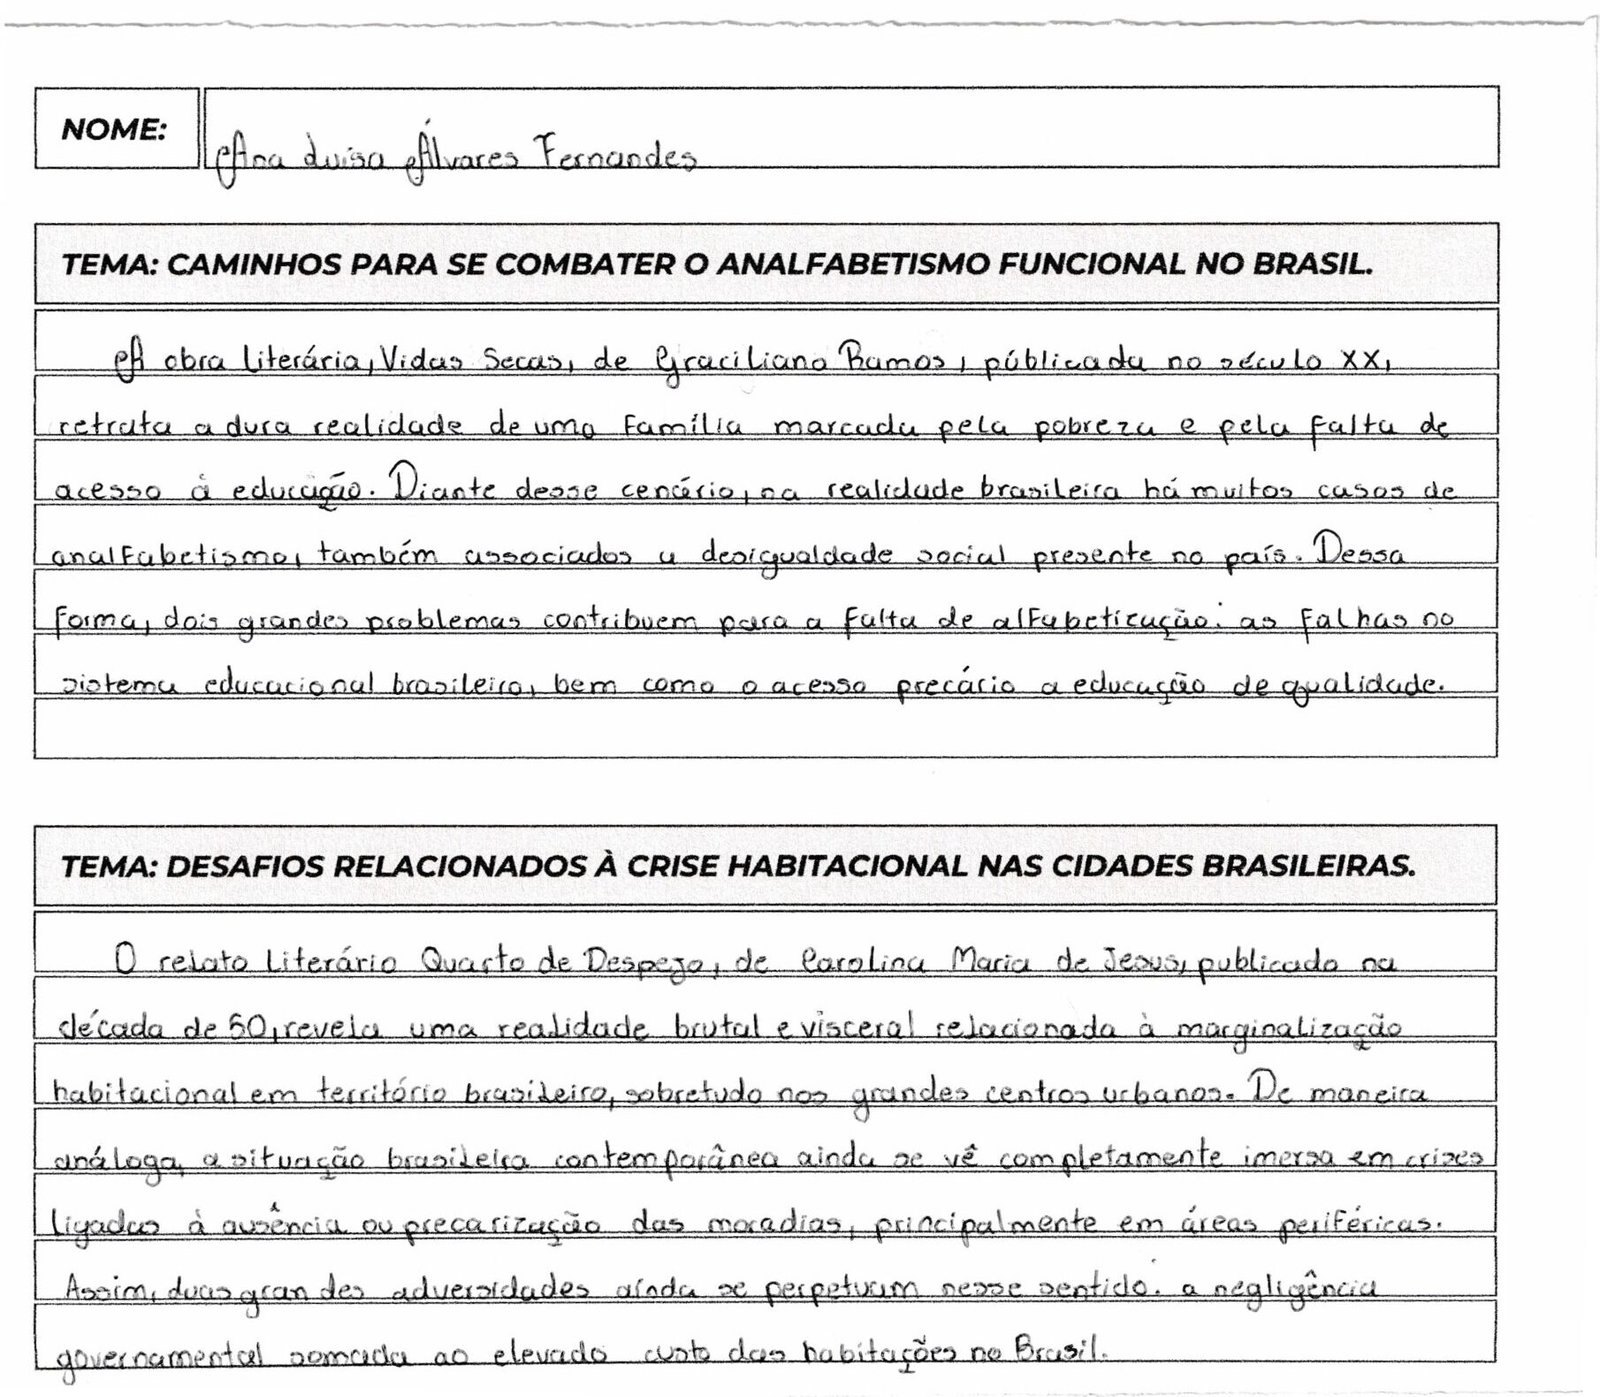 NOME: Ana Luísa Álvares Fernandes
TEMA: CAMINHOS PARA SE COMBATER O ANALFABETISMO FUNCIONAL NO BRASIL.
A obra literária, Vidas Secas, de Graciliano Ramos, públicada no século XX,
retrata a dura realidade de uma família marcada pela pobreza e pela falta de
acesso à educação. Diante desse cenário, na realidade brasileira há muitos casos de
analfabetismo, também associados a desigualdade social presente no país. Dessa
forma, dois grandes problemas contribuem para a falta de alfabetização: as falhas no
sistema educacional brasileiro, bem como o acesso precário a educação de qualidade.
TEMA: DESAFIOS RELACIONADOS À CRISE HABITACIONAL NAS CIDADES BRASILEIRAS.
O relato literário Quarto de Despejo, de Carolina Maria de Jesus, publicado na
década de 50, revela uma realidade brutal e visceral relacionada à marginalização
habitacional em território brasileiro, sobretudo nos grandes centros urbanos. De maneira
análoga, a situação brasileira contemporânea ainda se vê completamente imersa em crises
ligadas à ausência ou precarização das moradias, principalmente em áreas periféricas.
Assim, duas grandes adversidades ainda se perpetuam nesse sentido: a negligência
governamental somada ao elevado custo das habitações no Brasil.